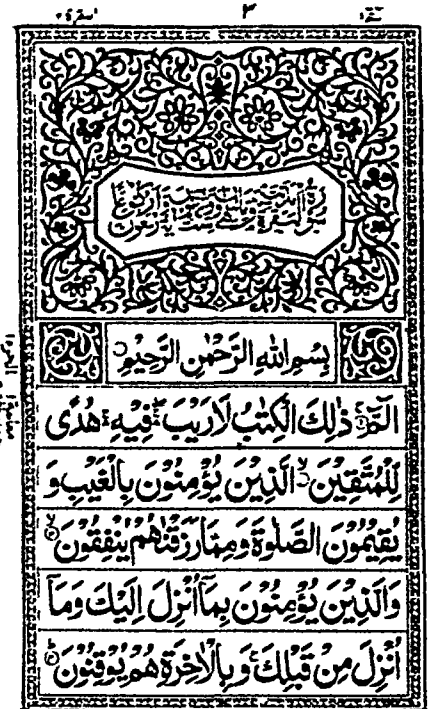 ٣
بِسْمِ اللهِ الرَّحْمٰنِ الرَّحِيْمِ
الٓمّٓ ذٰلِكَ الْكِتٰبُ لَا رَيْبَ فِيْهِ هُدًى
لِّلْمُتَّقِيْنَ الَّذِيْنَ يُؤْمِنُوْنَ بِالْغَيْبِ وَ
يُقِيْمُوْنَ الصَّلٰوةَ وَمِمَّا رَزَقْنٰهُمْ يُنْفِقُوْنَ
وَالَّذِيْنَ يُؤْمِنُوْنَ بِمَآ اُنْزِلَ اِلَيْكَ وَمَآ
اُنْزِلَ مِنْ قَبْلِكَ وَبِالْاٰخِرَةِ هُمْ يُوْقِنُوْنَ